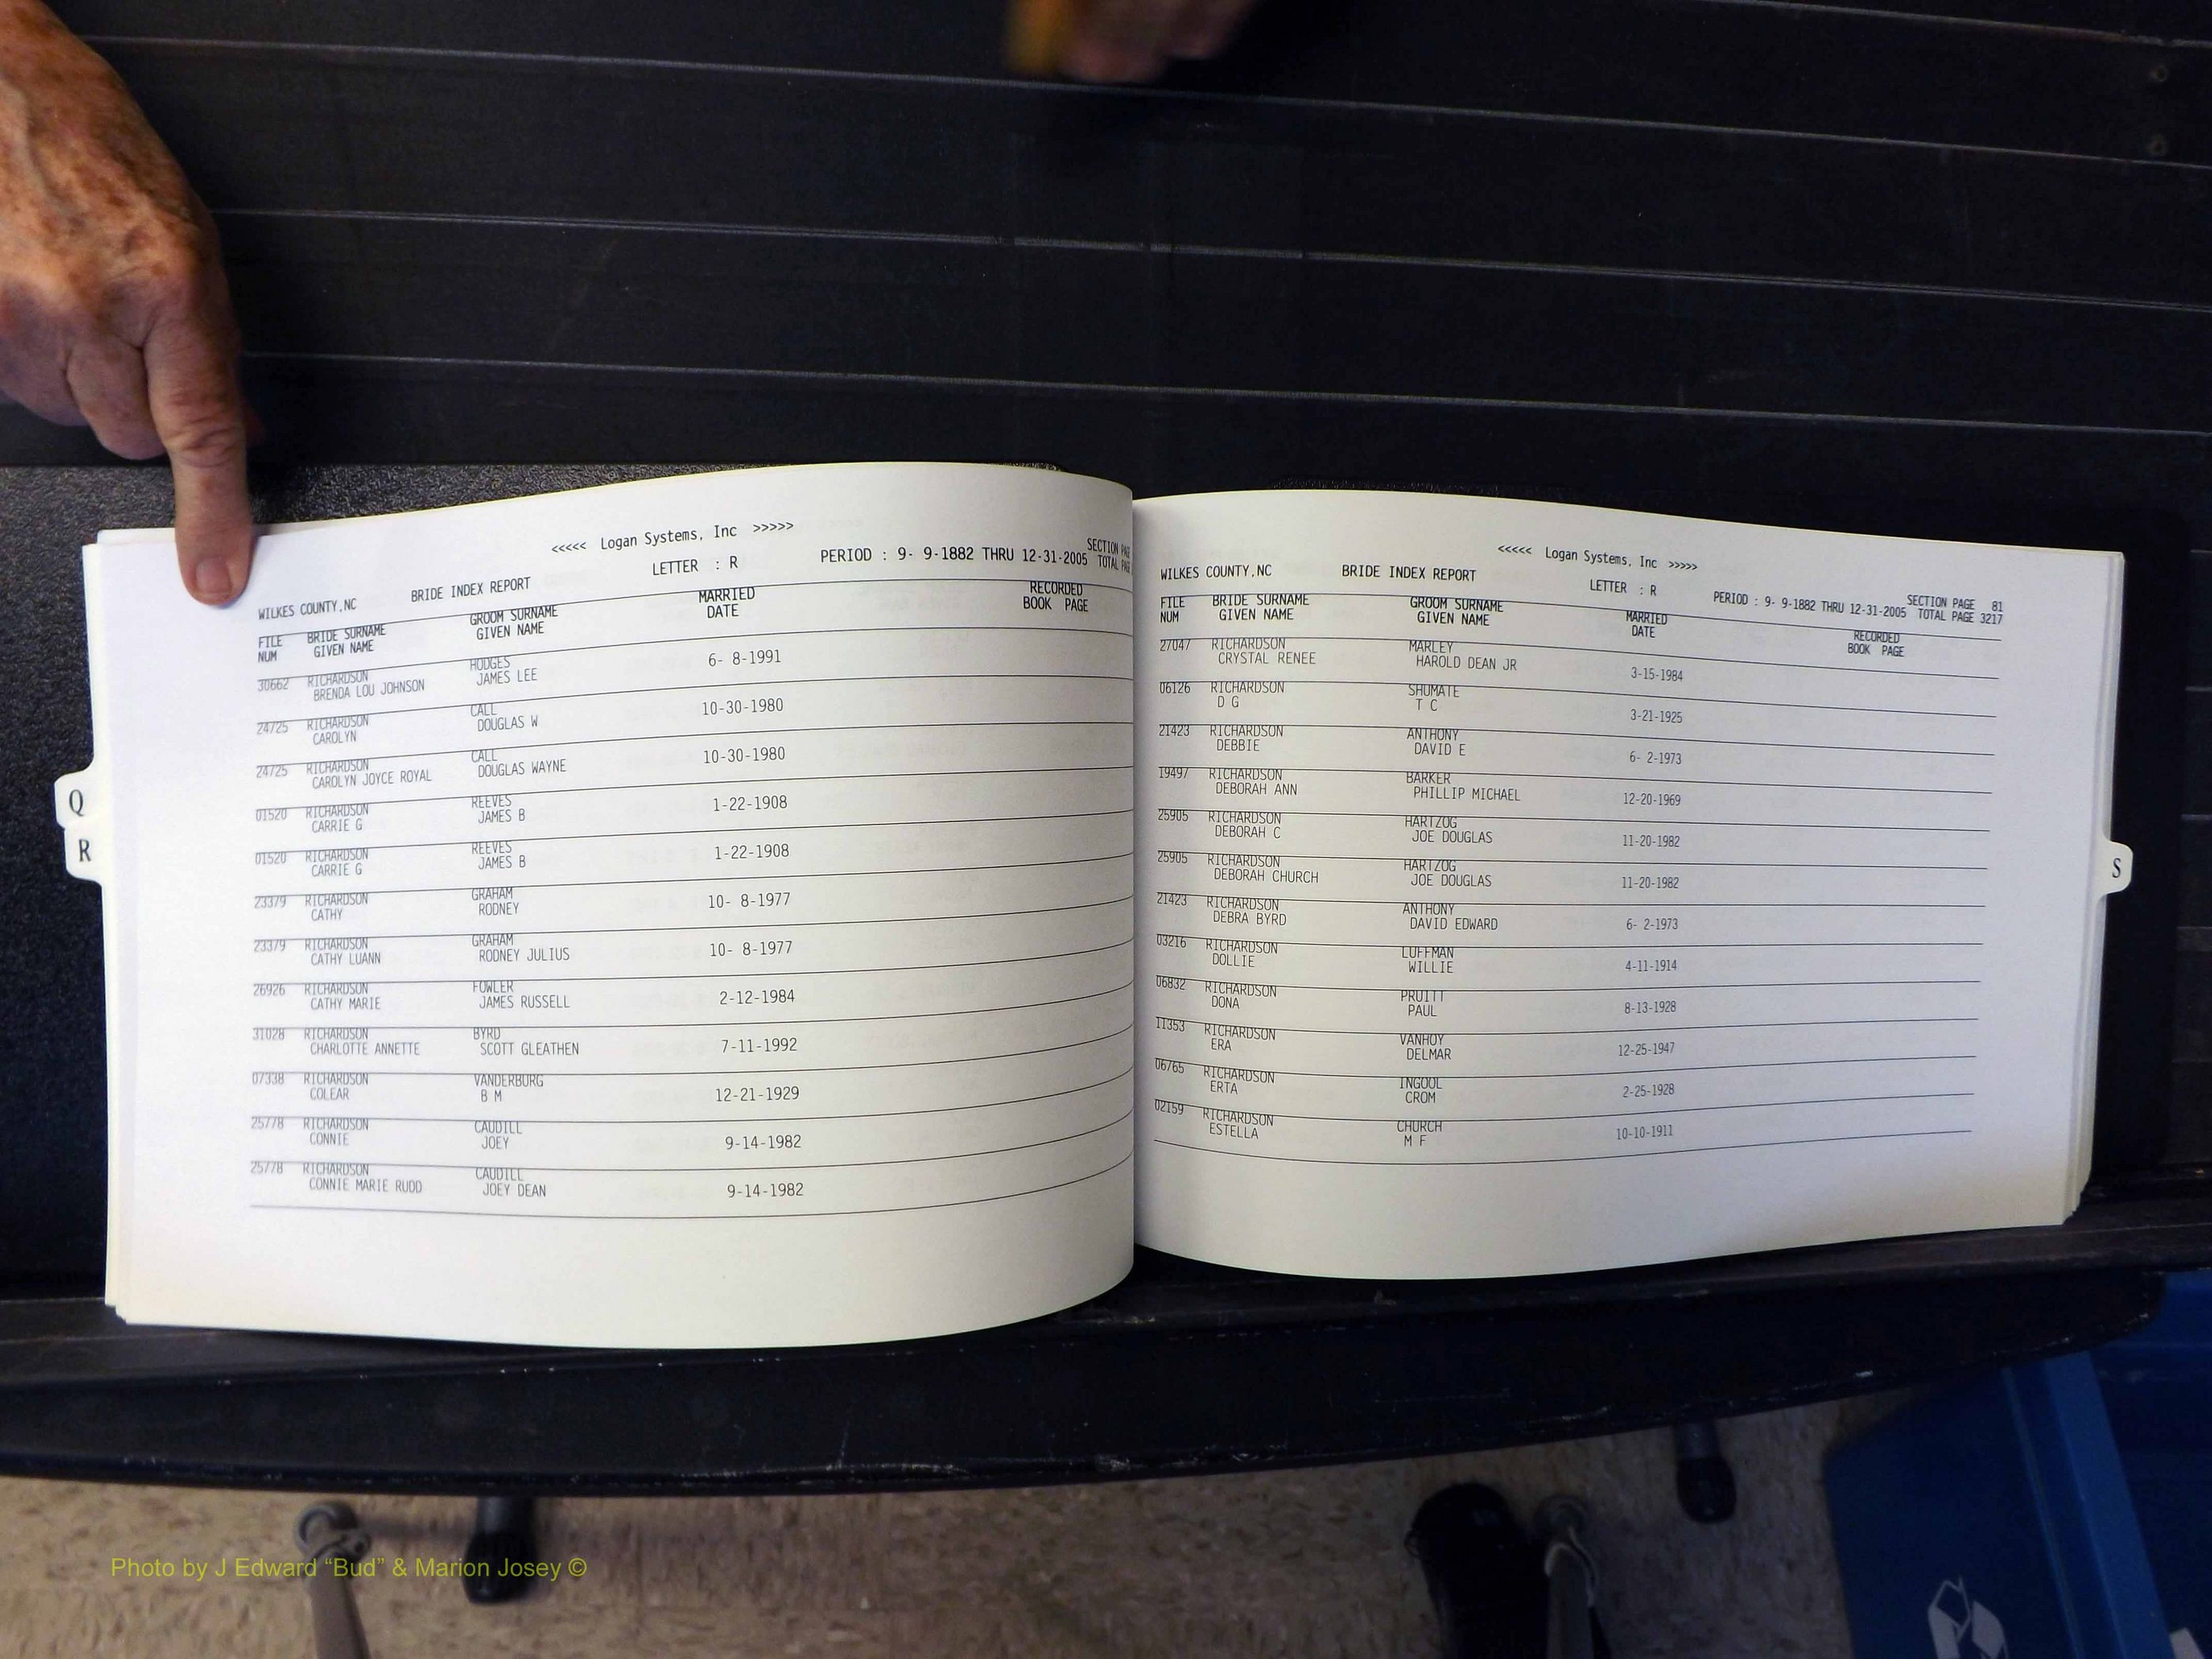 <<<<< Logan Systems, Inc >>>>>
WILKES COUNTY,NC BRIDE INDEX REPORT LETTER : R PERIOD : 9- 9-1882 THRU 12-31-2005 SECTION PAGE
TOTAL PAGE
FILE BRIDE SURNAME GROOM SURNAME MARRIED RECORDED
NUM GIVEN NAME GIVEN NAME DATE BOOK PAGE
30662 RICHARDSON HODGES 6- 8-1991
BRENDA LOU JOHNSON JAMES LEE
24725 RICHARDSON CALL 10-30-1980
CAROLYN DOUGLAS W
24725 RICHARDSON CALL 10-30-1980
CAROLYN JOYCE ROYAL DOUGLAS WAYNE
01520 RICHARDSON REEVES 1-22-1908
CARRIE G JAMES B
01520 RICHARDSON REEVES 1-22-1908
CARRIE G JAMES B
23379 RICHARDSON GRAHAM 10- 8-1977
CATHY RODNEY
23379 RICHARDSON GRAHAM 10- 8-1977
CATHY LUANN RODNEY JULIUS
26926 RICHARDSON FOWLER 2-12-1984
CATHY MARIE JAMES RUSSELL
31028 RICHARDSON BYRD 7-11-1992
CHARLOTTE ANNETTE SCOTT GLEATHEN
07338 RICHARDSON VANDERBURG 12-21-1929
COLEAR B M
25778 RICHARDSON CAUDILL 9-14-1982
CONNIE JOEY
25778 RICHARDSON CAUDILL 9-14-1982
CONNIE MARIE RUDD JOEY DEAN
Q
R
<<<<< Logan Systems, Inc >>>>>
WILKES COUNTY,NC BRIDE INDEX REPORT LETTER : R PERIOD : 9- 9-1882 THRU 12-31-2005 SECTION PAGE 81
TOTAL PAGE 3217
FILE BRIDE SURNAME GROOM SURNAME MARRIED RECORDED
NUM GIVEN NAME GIVEN NAME DATE BOOK PAGE
27047 RICHARDSON MARLEY 3-15-1984
CRYSTAL RENEE HAROLD DEAN JR
06126 RICHARDSON SHUMATE 3-21-1925
D G T C
21423 RICHARDSON ANTHONY 6- 2-1973
DEBBIE DAVID E
19497 RICHARDSON BARKER 12-20-1969
DEBORAH ANN PHILLIP MICHAEL
25905 RICHARDSON HARTZOG 11-20-1982
DEBORAH C JOE DOUGLAS
25905 RICHARDSON HARTZOG 11-20-1982
DEBORAH CHURCH JOE DOUGLAS
21423 RICHARDSON ANTHONY 6- 2-1973
DEBRA BYRD DAVID EDWARD
03216 RICHARDSON LUFFMAN 4-11-1914
DOLLIE WILLIE
06832 RICHARDSON PRUITT 8-13-1928
DONA PAUL
11353 RICHARDSON VANHOY 12-25-1947
ERA DELMAR
06765 RICHARDSON INGOOL 2-25-1928
ERTA CROM
02159 RICHARDSON CHURCH 10-10-1911
ESTELLA M F
S
Photo by J Edward “Bud” & Marion Josey ©